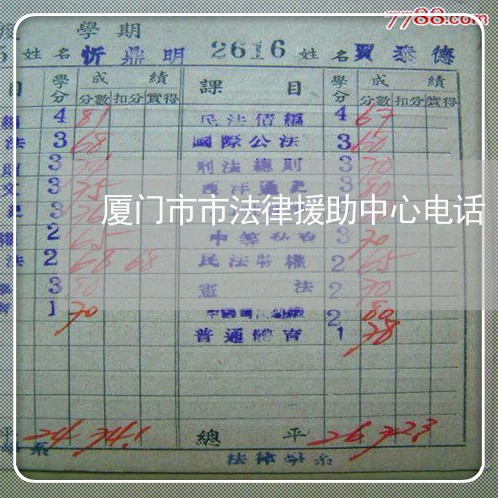 7788.com
學期
姓名 忻鼎明 2616 姓名 賈泰德
目 學分 成績 課目 學分 成績
分數 扣分 實得 分數 扣分 實得
4 81 民法債編 4 67
法 3 68 國際公法 3 60
3 刑法總則 3 70
3 75 西洋通史 3 80
厦门市市法律援助中心电话
2 65 3 70
法 2 68 68 民法物權 2 65
3 80 憲法 2 70
1 70 2 80
普通體育 1 78
平 24 74.1 總平 26 72.3
系 法律學系